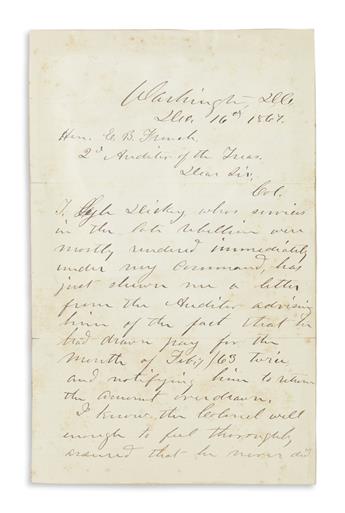 Washington, D.C.
Dec. 16th 1867.
Hon. E. B. French
2d Auditor of the Treas.
Dear Sir,
Col.
T. Lyle Dickey whose services
in the late rebellion were
mostly rendered immediately
under my command, has
just shown me a letter
from the Auditor advising
him of the fact that he
had drawn pay for the
month of Feby /63 twice
and notifying him to return
the amount overdrawn.
I know the Colonel well
enough to feel thoroughly
assured that he never did